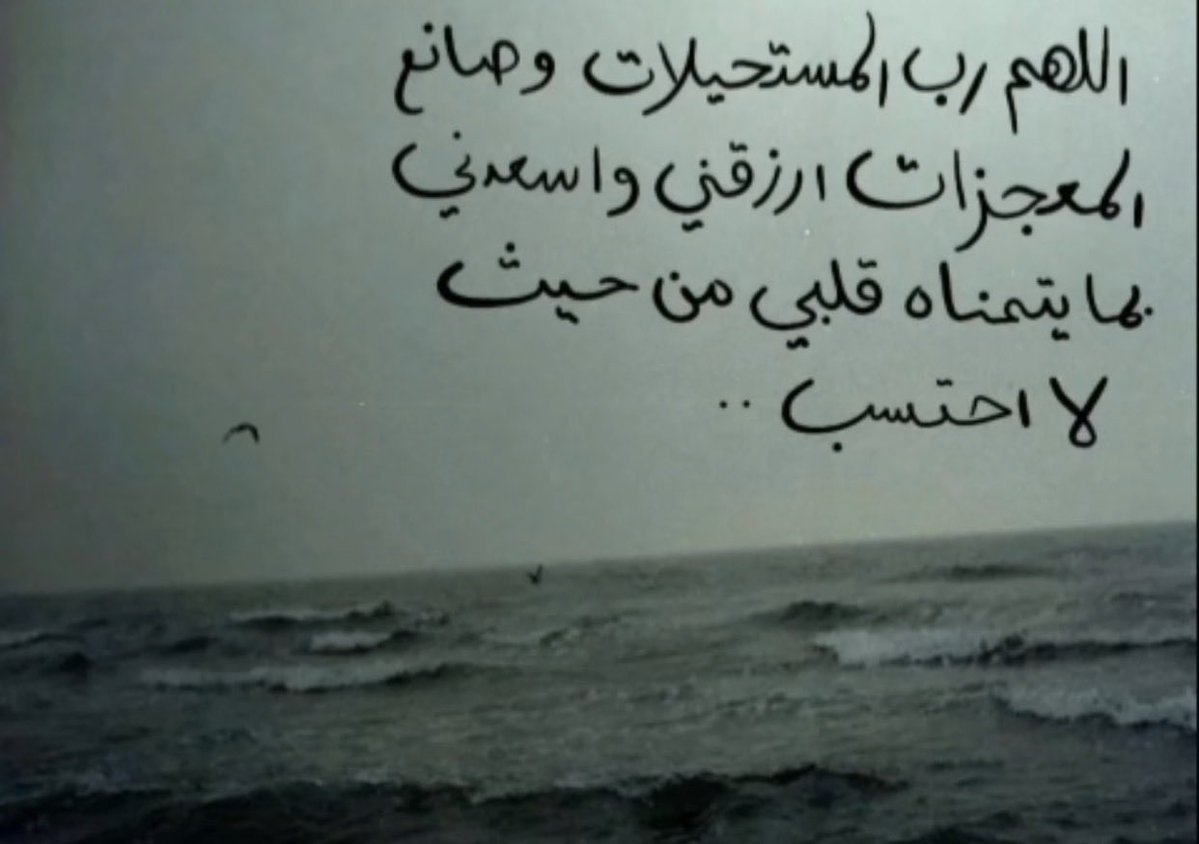 اللهم رب المستحيلات وصانع
المعجزات ارزقني واسعدني
بما يتمناه قلبي من حيث
لا احتسب ..